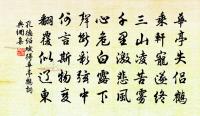 華亭失侶鶴
乘軒寵遂終
三山凌苦霧
千里激悲風
心危白露下
聲斷彩絃中
何言斯物變
翻覆似遼東
孔德紹賦得華亭鶴詞
典調集